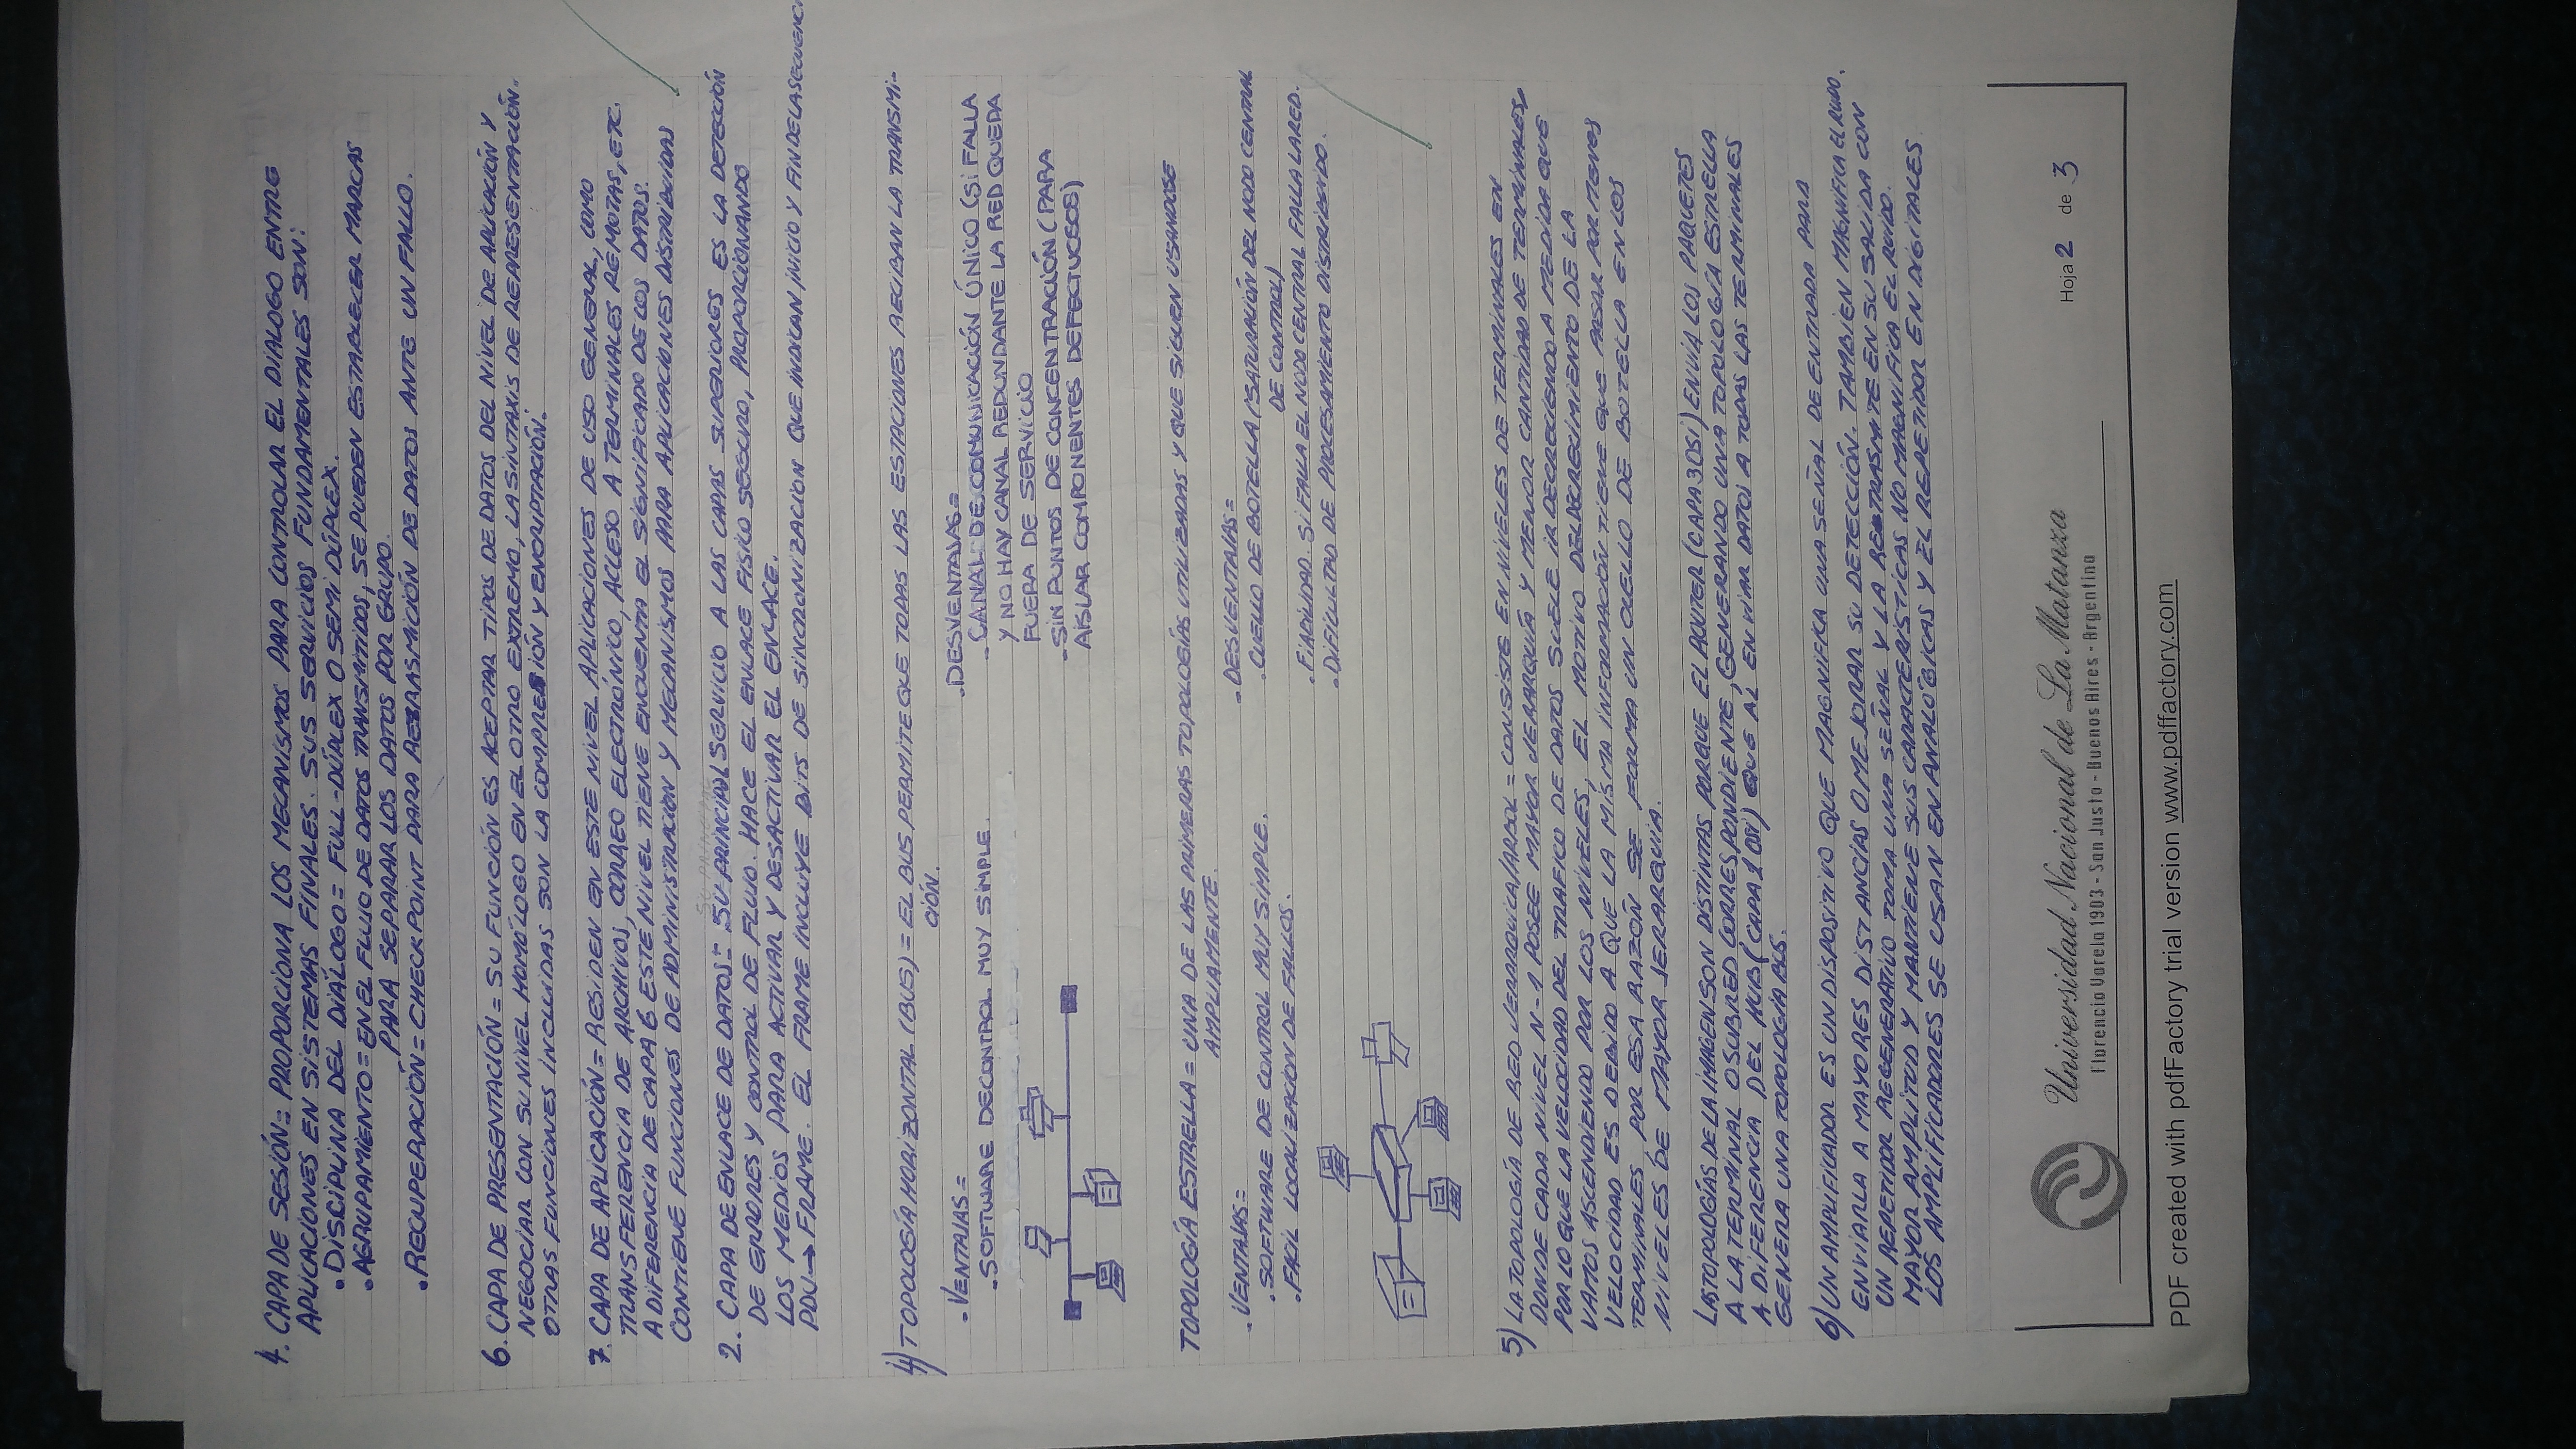 4. CAPA DE SESIÓN = PROPORCIONA LOS MECANISMOS PARA CONTROLAR EL DIALOGO ENTRE
APLICACIONES EN SISTEMAS FINALES. SUS SERVICIOS FUNDAMENTALES SON:
• DISCIPLINA DEL DIÁLOGO = FULL-DÚPLEX O SEMI DÚPLEX.
• AGRUPAMIENTO = EN EL FLUJO DE DATOS TRANSMITIDOS, SE PUEDEN ESTABLECER MARCAS
PARA SEPARAR LOS DATOS POR GRUPO.
• RECUPERACIÓN = CHECKPOINT PARA RETRASMICIÓN DE DATOS ANTE UN FALLO.
6. CAPA DE PRESENTACIÓN = SU FUNCIÓN ES ACEPTAR TIPOS DE DATOS DEL NIVEL DE APLICACIÓN Y
NEGOCIAR CON SU NIVEL HOMÓLOGO EN EL OTRO EXTREMO, LA SINTAXIS DE REPRESENTACIÓN.
OTRAS FUNCIONES INCLUIDAS SON LA COMPRESIÓN Y ENCRIPTACIÓN.
7. CAPA DE APLICACIÓN = RESIDEN EN ESTE NIVEL APLICACIONES DE USO GENERAL, COMO
TRANSFERENCIA DE ARCHIVOS, CORREO ELECTRÓNICO, ACCESO A TERMINALES REMOTAS, ETC.
A DIFERENCIA DE CAPA 6 ESTE NIVEL TIENE ENCUENTA EL SIGNIFICADO DE LOS DATOS.
CONTIENE FUNCIONES DE ADMINISTRACION Y MECANISMOS PARA APLICACIONES DISTRIBUIDAS
2. CAPA DE ENLACE DE DATOS = SU PRINCIPAL SERVICIO A LAS CAPAS SUPERIORES ES LA DETECCIÓN
DE ERRORES Y CONTROL DE FLUJO. HACE EL ENLACE FISICO SEGURO, PROPORCIONANDO
LOS MEDIOS PARA ACTIVAR Y DESACTIVAR EL ENLACE.
PDU → FRAME. EL FRAME INCLUYE BITS DE SINCRONIZACION QUE INDICAN INICIO Y FIN DE LA SECUENCI
4) TOPOLOGÍA HORIZONTAL (BUS) = EL BUS PERMITE QUE TODAS LAS ESTACIONES RECIBAN LA TRANSMI-
CIÓN.
- VENTAJAS =
• SOFTWARE DE CONTROL MUY SIMPLE.
• DESVENTAJAS =
- CANAL DE COMUNICACIÓN ÚNICO (SI FALLA
Y NO HAY CANAL REDUNDANTE LA RED QUEDA
FUERA DE SERVICIO
- SIN PUNTOS DE CONCENTRACIÓN (PARA
AISLAR COMPONENTES DEFECTUOSOS)
TOPOLOGÍA ESTRELLA = UNA DE LAS PRIMERAS TOPOLOGÍAS UTILIZADAS Y QUE SIGUEN USANDOSE
AMPLIAMENTE.
• VENTAJAS =
• SOFTWARE DE CONTROL MUY SIMPLE.
• FACIL LOCALIZACION DE FALLOS.
- DESVENTAJAS =
• CUELLO DE BOTELLA (SATURACIÓN DEL NODO CENTRAL
DE CONTROL)
• FIABILIDAD. SI FALLA EL NODO CENTRAL FALLA LA RED.
• DIFICULTAD DE PROCESAMIENTO DISTRIBUIDO.
5) LA TOPOLOGÍA DE RED JERARQUICA/ARBOL = CONSISTE EN NIVELES DE TERMINALES EN
DONDE CADA NIVEL N-1 POSEE MAYOR JERARQUÍA Y MENOR CANTIDAD DE TERMINALES,
POR LO QUE LA VELOCIDAD DEL TRAFICO DE DATOS SUELE IR DECRECIENDO A MEDIDA QUE
VAMOS ASCENDIENDO POR LOS NIVELES, EL MOTIVO DEL DECRECIMIENTO DE LA
VELOCIDAD ES DEBIDO A QUE LA MISMA INFORMACIÓN TIENE QUE PASAR POR MENOS
TERMINALES, POR ESA RAZÓN SE FORMA UN CUELLO DE BOTELLA EN LOS
NIVELES DE MAYOR JERARQUIA.
LAS TOPOLOGÍAS DE LA IMAGEN SON DISTINTAS PORQUE EL ROUTER (CAPA 3 OSI) ENVIA LOS PAQUETES
A LA TERMINAL O SUBRED CORRESPONDIENTE, GENERANDO UNA TOPOLOGÍA ESTRELLA
A DIFERENCIA DEL HUB (CAPA 1 OSI) QUE AL ENVIAR DATOS A TODAS LAS TERMINALES
GENERA UNA TOPOLOGIA BUS.
6) UN AMPLIFICADOR ES UN DISPOSITIVO QUE MAGNIFICA UNA SEÑAL DE ENTRADA PARA
ENVIARLA A MAYORES DISTANCIAS O MEJORAR SU DETECCIÓN. TAMBIEN MAGNIFICA EL RUIDO.
UN REPETIDOR REGENERATIVO TOMA UNA SEÑAL Y LA RETRASMITE EN SU SALIDA CON
MAYOR AMPLITUD Y MANTIENE SUS CARACTERÍSTICAS NO MAGNIFICA EL RUIDO.
LOS AMPLIFICADORES SE USAN EN ANALÓGICAS Y EL REPETIDOR EN DIGITALES
Universidad Nacional de La Matanza
Florencio Varela 1903 - San Justo - Buenos Aires - Argentina
Hoja 2 de 3
PDF created with pdfFactory trial version www.pdffactory.com